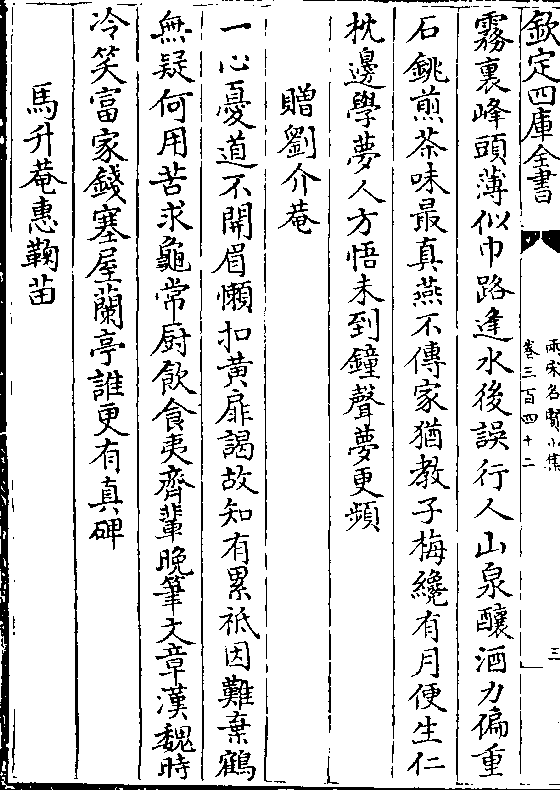 欽定四庫全書
兩宋名賢小集
卷三百四十二
三
霧裏峰頭薄似巾路逢水後誤行人山泉釀酒力偏重
石銚煎茶味最真燕不傳家猶教子梅纔有月便生仁
枕邊學夢人方悟未到鐘聲夢更頻
贈劉介菴
一心憂道不開眉懶扣黃扉謁故知有累祇因難棄鶴
無疑何用苦求龜常厨飲食夷齊輩晚筆文章漢魏時
冷笑富家錢塞屋蘭亭誰更有真碑
馬升菴惠鞠苗